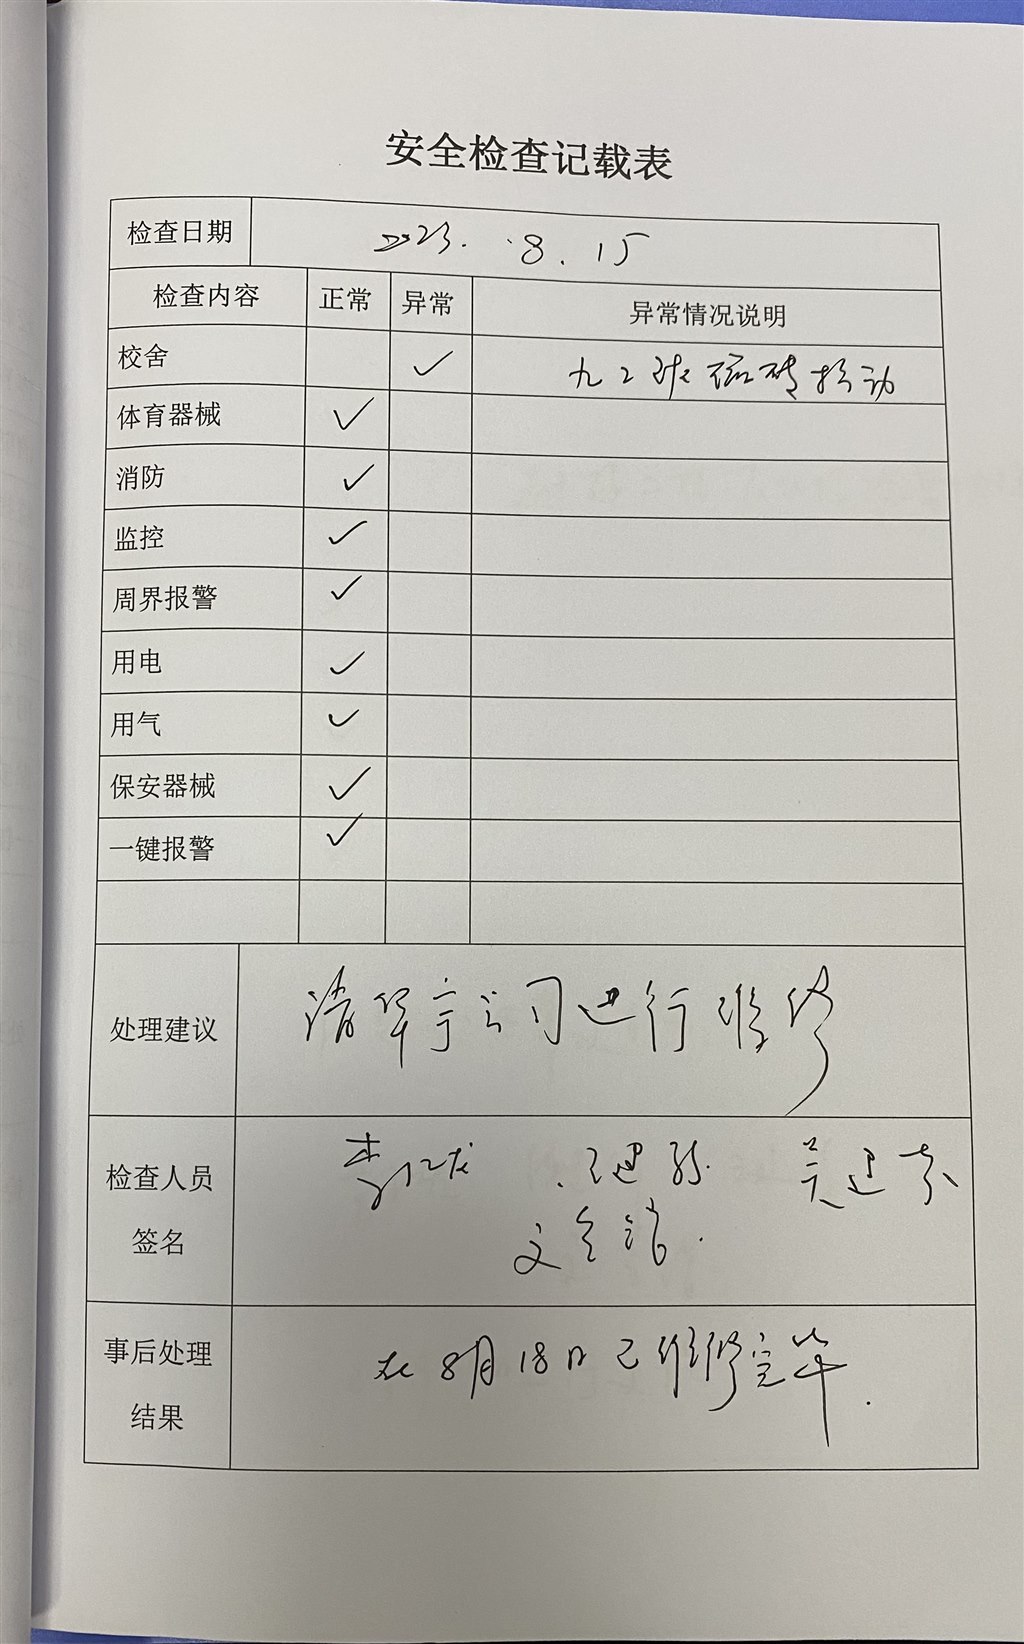 安全检查记载表
检查日期 2023. 8. 15
检查内容 正常 异常 异常情况说明
校舍 ✓ 九2班磁砖松动
体育器械 ✓
消防 ✓
监控 ✓
周界报警 ✓
用电 ✓
用气 ✓
保安器械 ✓
一键报警 ✓
处理建议 请华宇公司进行维修
检查人员
签名
事后处理 在8月18日已维修完毕.
结果